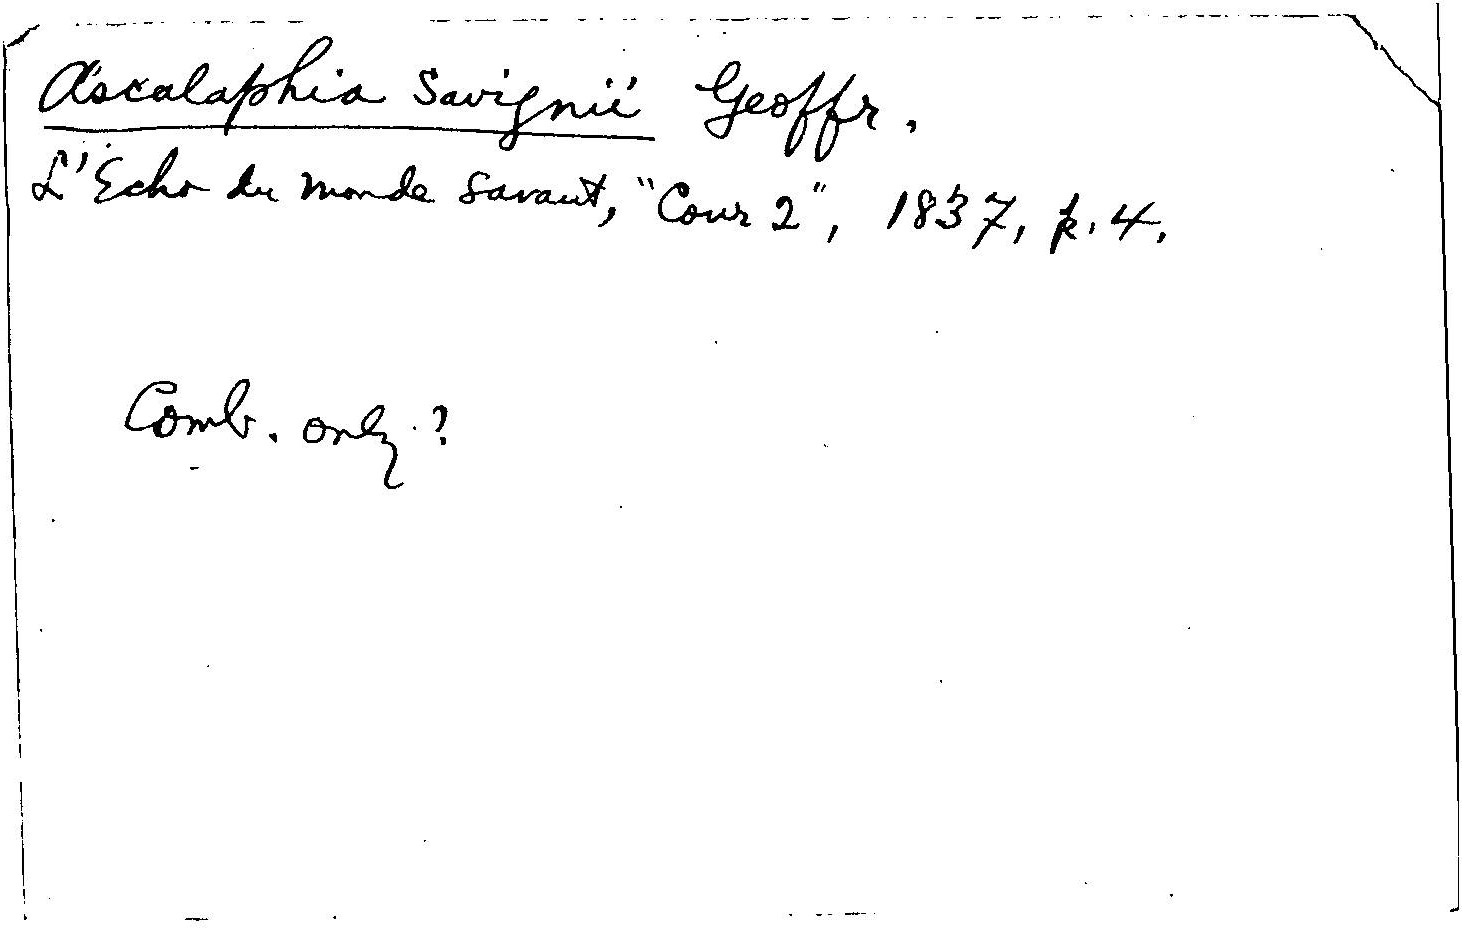 Ascalaphia Savignii Geoffr.
L'Echo du Monde Savant, "Cour 2", 1837, p. 4.
Comb. only?